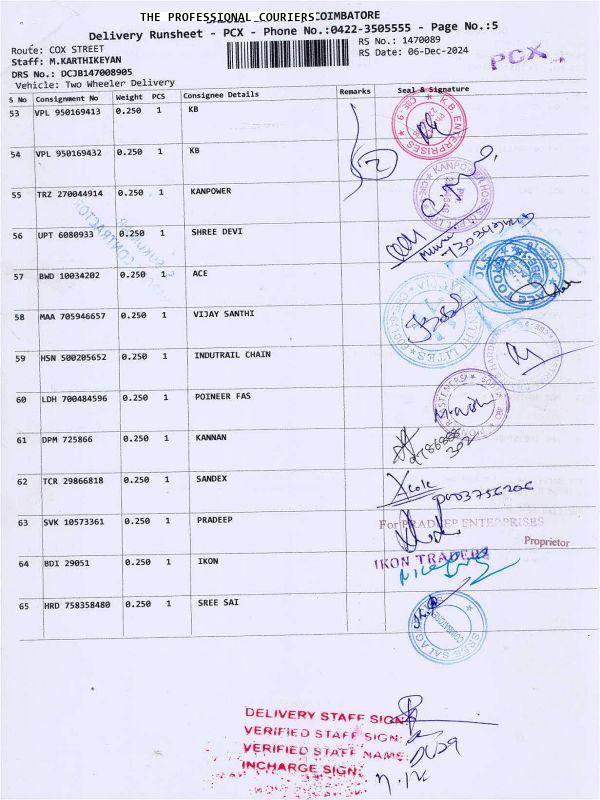 THE PROFESSIONAL COURIERS COIMBATORE
Delivery Runsheet - PCX - Phone No.:0422-3505555 - Page No.:5
Route: COX STREET
RS No.: 1470089
Staff: M.KARTHIKEYAN
RS Date: 06-Dec-2024
PCX
DRS No.: DCJB147008905
Vehicle: Two Wheeler Delivery
S No Consignment No Weight PCS Consignee Details Remarks Seal & Signature
53 VPL 950169413 0.250 1 KB
54 VPL 950169432 0.250 1 KB
2
55 TRZ 270044914 0.250 1 KANPOWER
56 UPT 6080933 0.250 1 SHREE DEVI
57 BWD 10034202 0.250 1 ACE
58 MAA 705946657 0.250 1 VIJAY SANTHI
59 HSN 500205652 0.250 1 INDUTRAIL CHAIN
60 LDH 700484596 0.250 1 POINEER FAS
61 DPM 725866 0.250 1 KANNAN
62 TCR 29866818 0.250 1 SANDEX
63 SVK 10573361 0.250 1 PRADEEP
For PRADEEP ENTERPRISES
Proprietor
64 BDI 29051 0.250 1 IKON
IKON TRADERS
65 HRD 758358480 0.250 1 SREE SAI
DELIVERY STAFF SIGN:
VERIFIED STAFF SIGN:
VERIFIED STAFF NAME:
INCHARGE SIGN: